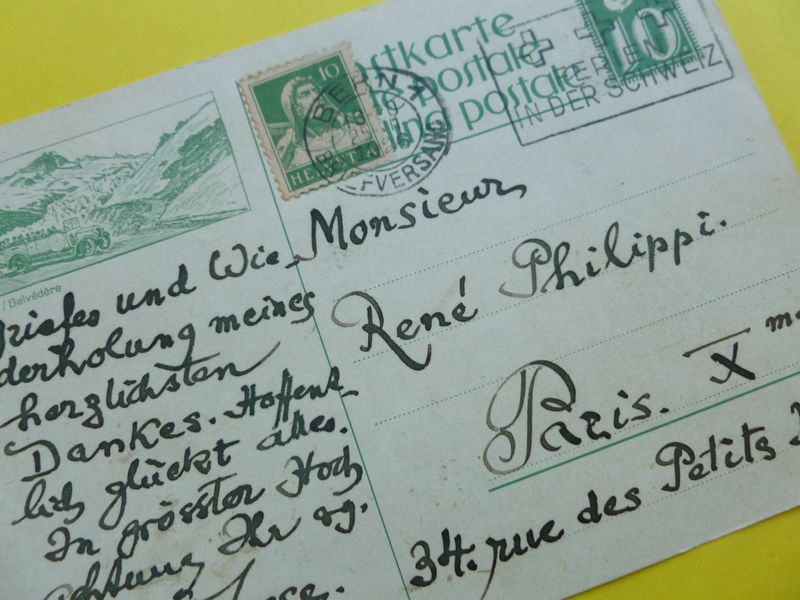 stkarte
postale
lina postale
FERIEN
IN DER SCHWEIZ
10
10
HELVETIA
BERN
BRIEFVERSAND
/ Belvédère
Briefes und Wie-
derholung meines
herzlichsten
Dankes. Hoffent-
lich glückt alles.
In grösster Hoch
achtung Ihr erg.
Monsieur
René Philippi.
Paris. X me
34. rue des Petits